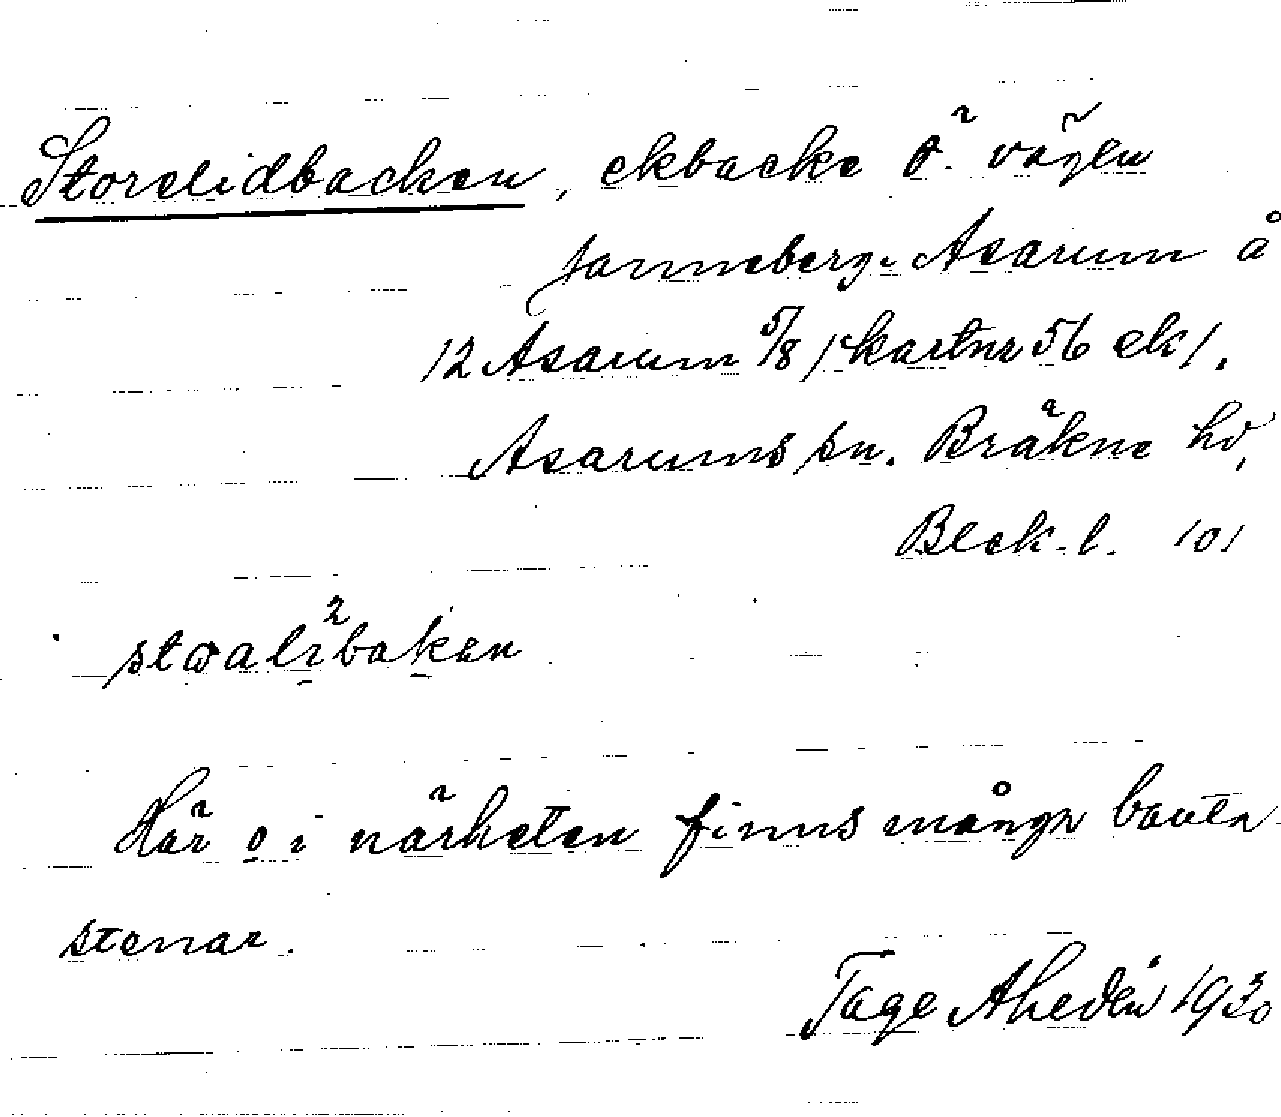 Storelidbacken, ekbacke ö. vägen
Janneberg. Asarum å
12 Asarum 5/8 /kartnr 56 ek/.
Asarums sn. Bräkne hd,
Blek. l. 101
Här o i närheten finns många bauta
stenar.
Tage Ahedén 1930